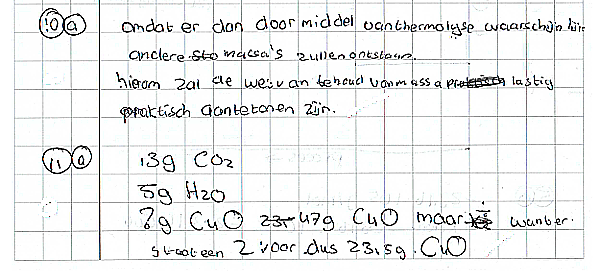 10 a omdat er dan door middel van thermolyse waarschijnlijk
andere massa's zullen ontstaan.
hierom zal de wet van behoud van massa lastig
praktisch aantetonen zijn.
11 a 13g CO2
5g H2O
?g CuO 47g CuO maar
staat een 2 voor dus 23,5g. CuO